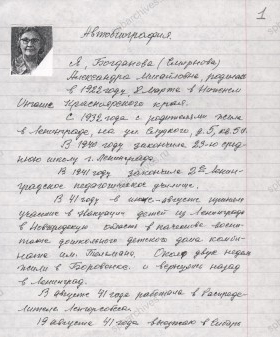 1
Автобиография.
Я, Богданова (Смирнова)
Александра Михайловна, родилась
в 1922 году, 8 марта в Нижнем
Красноярского края.
С 1932 года с родителями жила
в Ленинграде, на ул. д. 5, кв. 50.
В 1940 году закончила 23-ю сред-
нюю школу г. Ленинграда.
В 1941 году закончила 2ое Ленин-
градское педагогическое училище.
В 41 году в июле-августе приним
участие в эвакуации детей из Ленинграда
в Новгородскую область в качестве воспи-
дошкольного детского дома комби-
ната им. Тельмана. Около двух недель
жили в Боровёнке и вернулись назад
в Ленинград.
В августе 41 года работала в Распреде-
лителе
19 августа 41 года в Сибирь